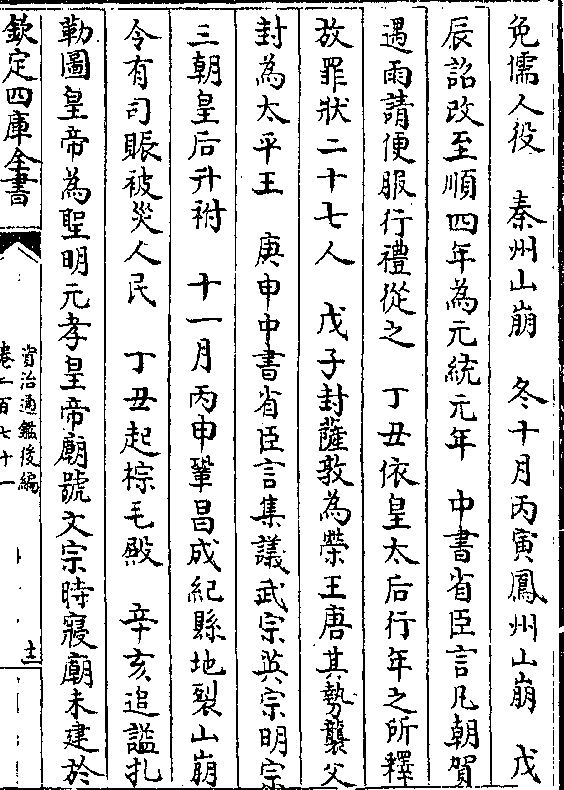 免儒人役　秦州山崩　冬十月丙寅鳳州山崩　戊
辰詔改至順四年為元統元年　中書省臣言凡朝賀
遇雨請便服行禮從之　丁丑依皇太后行年之所釋
放罪狀二十七人　戊子封薩敦為榮王唐其勢襲父
封為太平王　庚申中書省臣言集議武宗英宗明宗
三朝皇后升祔　十一月丙申鞏昌成紀縣地裂山崩
令有司賑被災人民　丁丑起棕毛殿　辛亥追諡扎
勒圖皇帝為聖明元孝皇帝廟號文宗時寢廟未建於
欽定四庫全書
資治通鑑後編
卷一百七十一